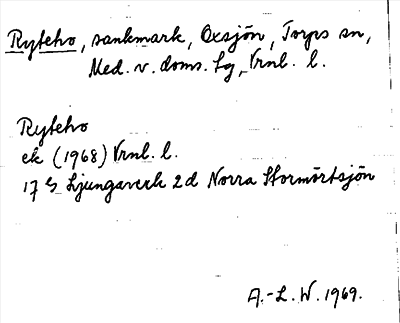 Ryteho, sankmark, Oxsjön, Torps sn,
Med. v. doms. tg, Vrnl. l.
Ryteho
ek (1968) Vrnl. l.
17 G Ljungaverk 2d Norra Stormörtsjön
A.-L. W. 1969.